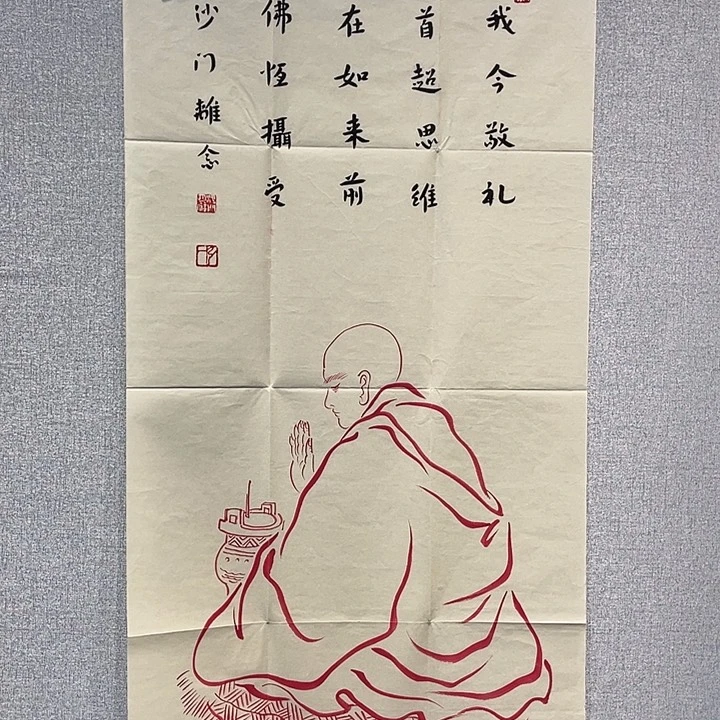 我今敬礼
首超思维
在如来前
佛恆攝受
沙门離念